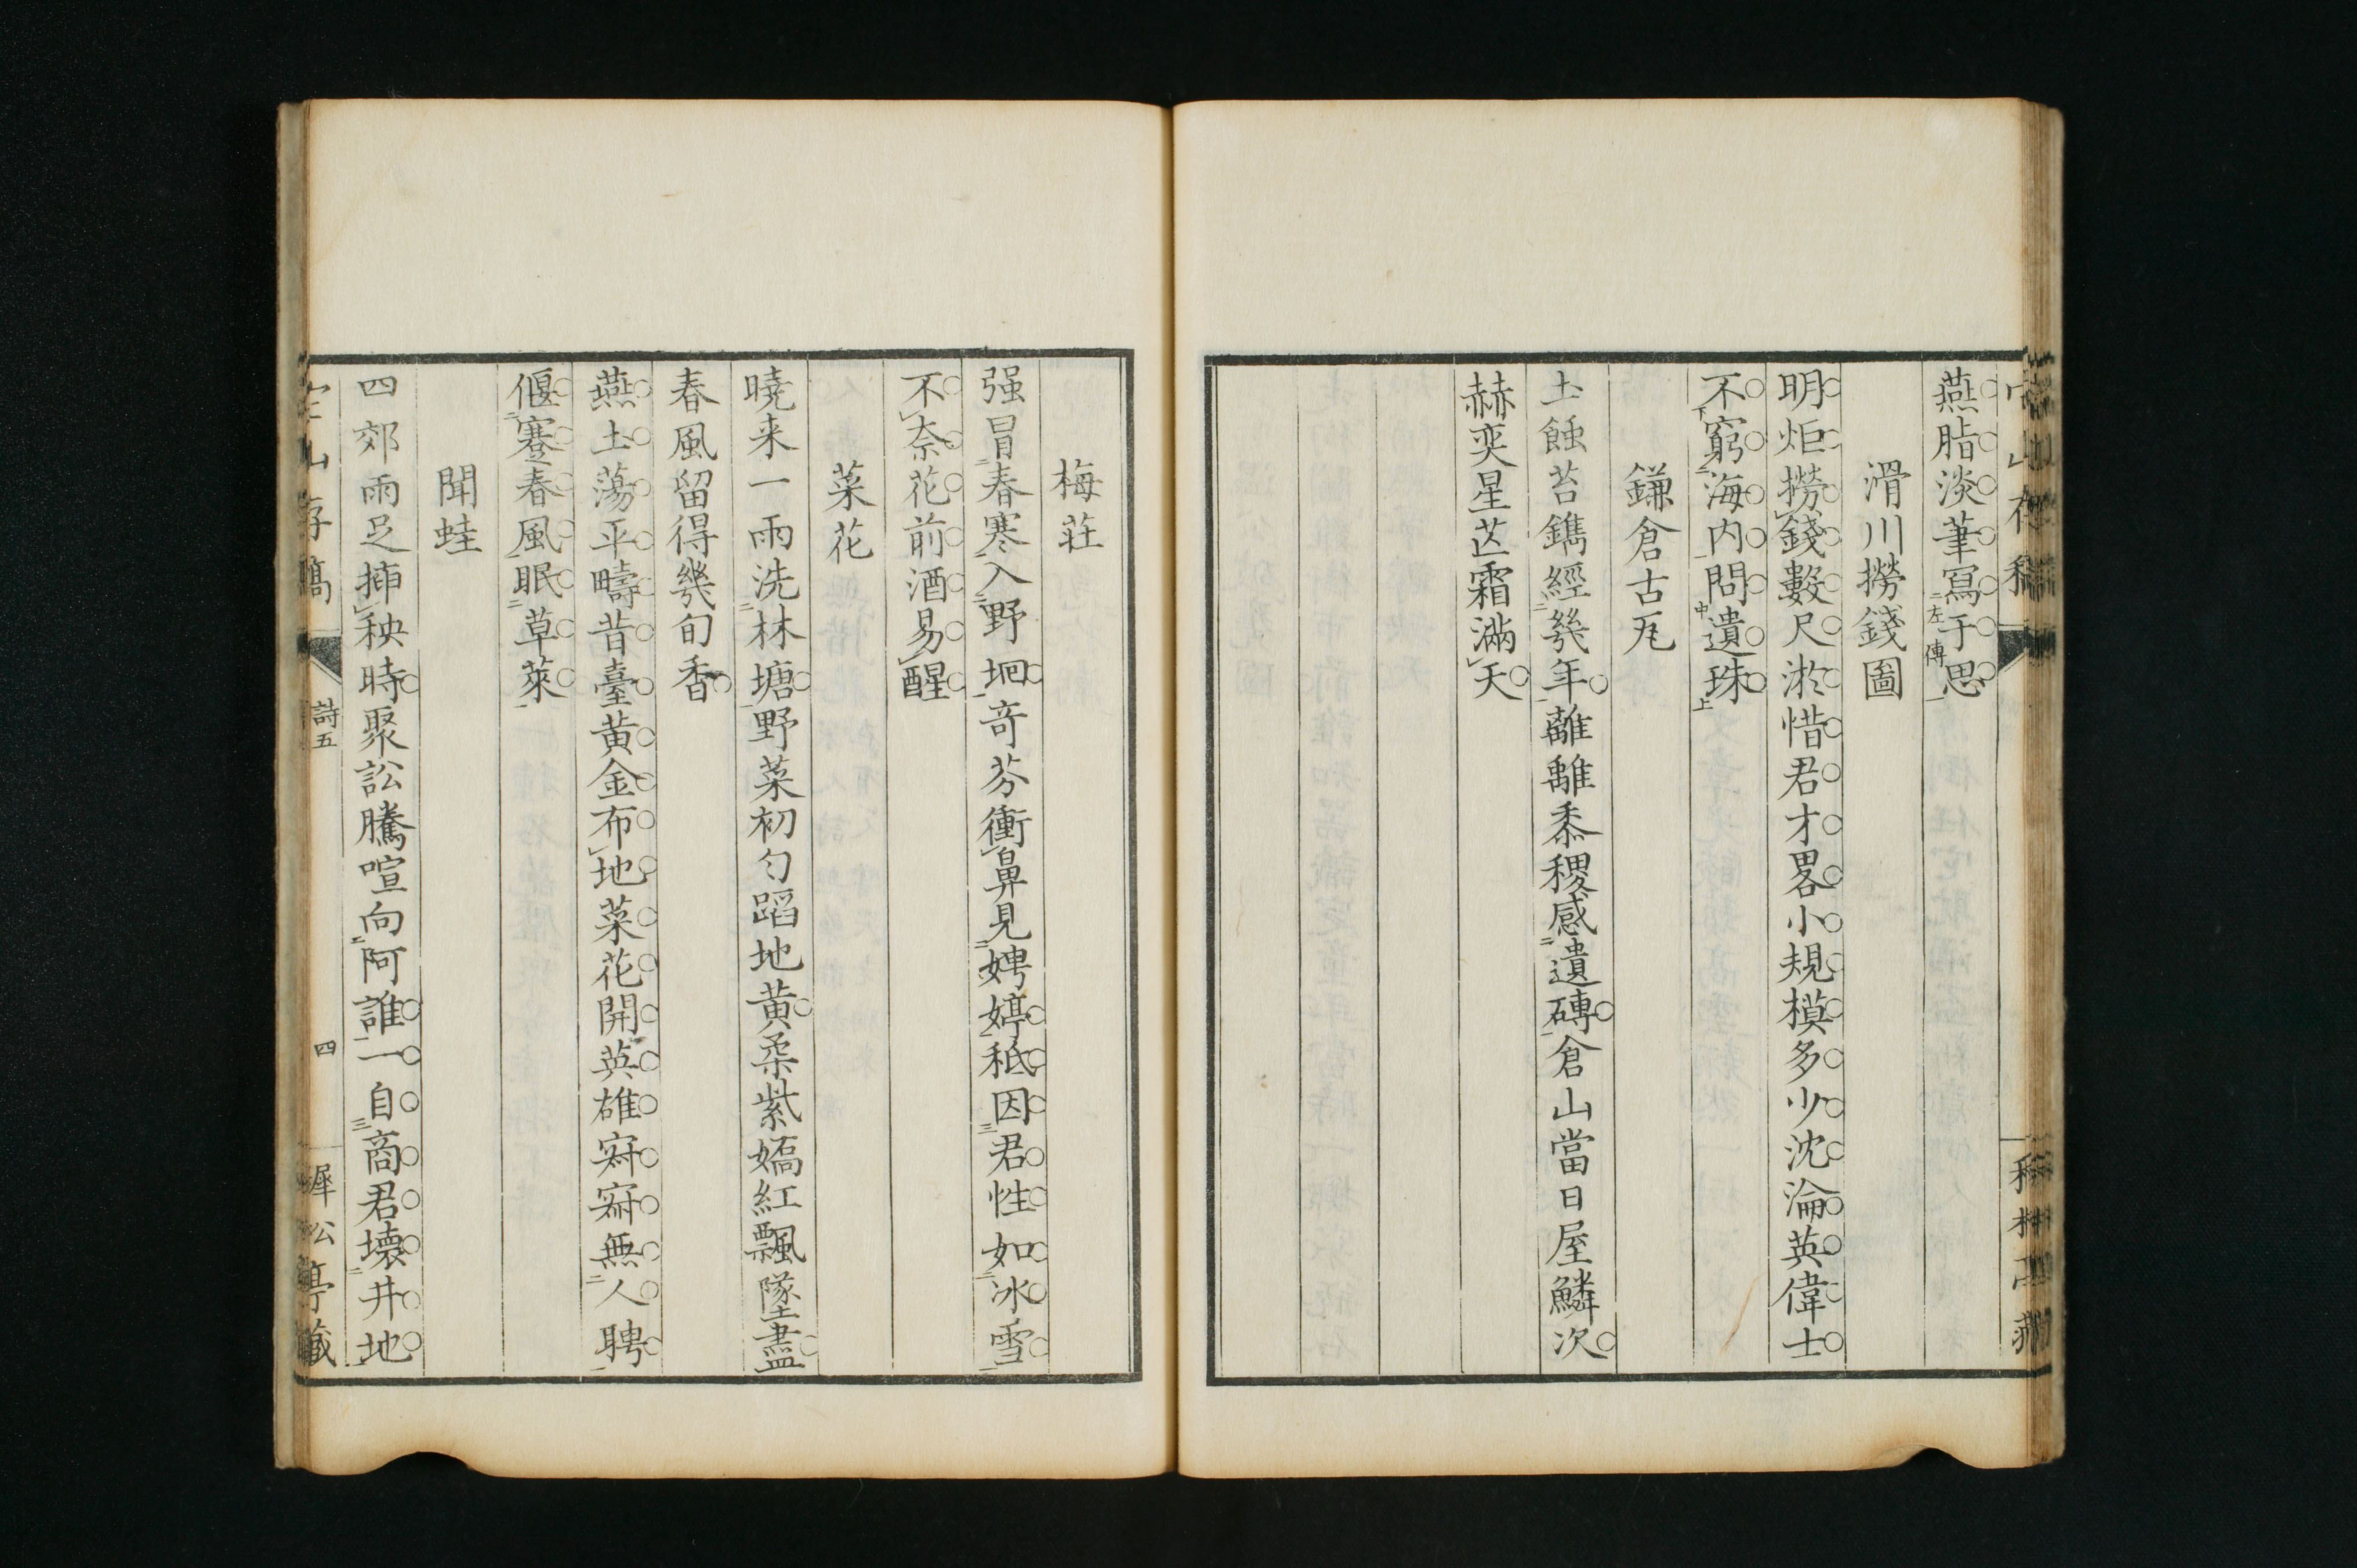 燕脂淡筆寫于思
滑川撈錢圖
明炬撈錢數尺淤惜君才畧小規模多少沈淪英偉士
不窮海内問遺珠
鎌倉古瓦
土蝕苔鐫經幾年離離黍稷感遺磚倉山當日屋鱗次
赫奕星芒霜滿天
梅莊
强冒春寒入野坰奇芬衝鼻見娉婷秖因君性如冰雪
不奈花前酒易醒
菜花
曉来一雨洗林塘野菜初匀蹈地黄柔紫嬌紅飄墜盡
春風留得幾旬香
燕土蕩平疇昔臺黄金布地菜花開英雄寂寂無人聘
偃蹇春風眠草萊
聞蛙
四郊雨足揷秧時聚訟騰喧向阿誰一自商君壞井地
山存稿
詩五
四
犀公亭藏